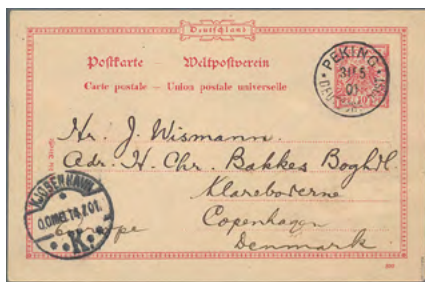 Deutschland
Postkarte — Weltpostverein
Carte postale — Union postale universelle
PEKING
30 5
01
DEUTSCHE
Hr. J. Wismann.
Adr: H. Chr. Bakkes Boghdl.
Klareboderne
Copenhagen
Denmark
Europe
KJØBENHAVN
14.7.01.
K.